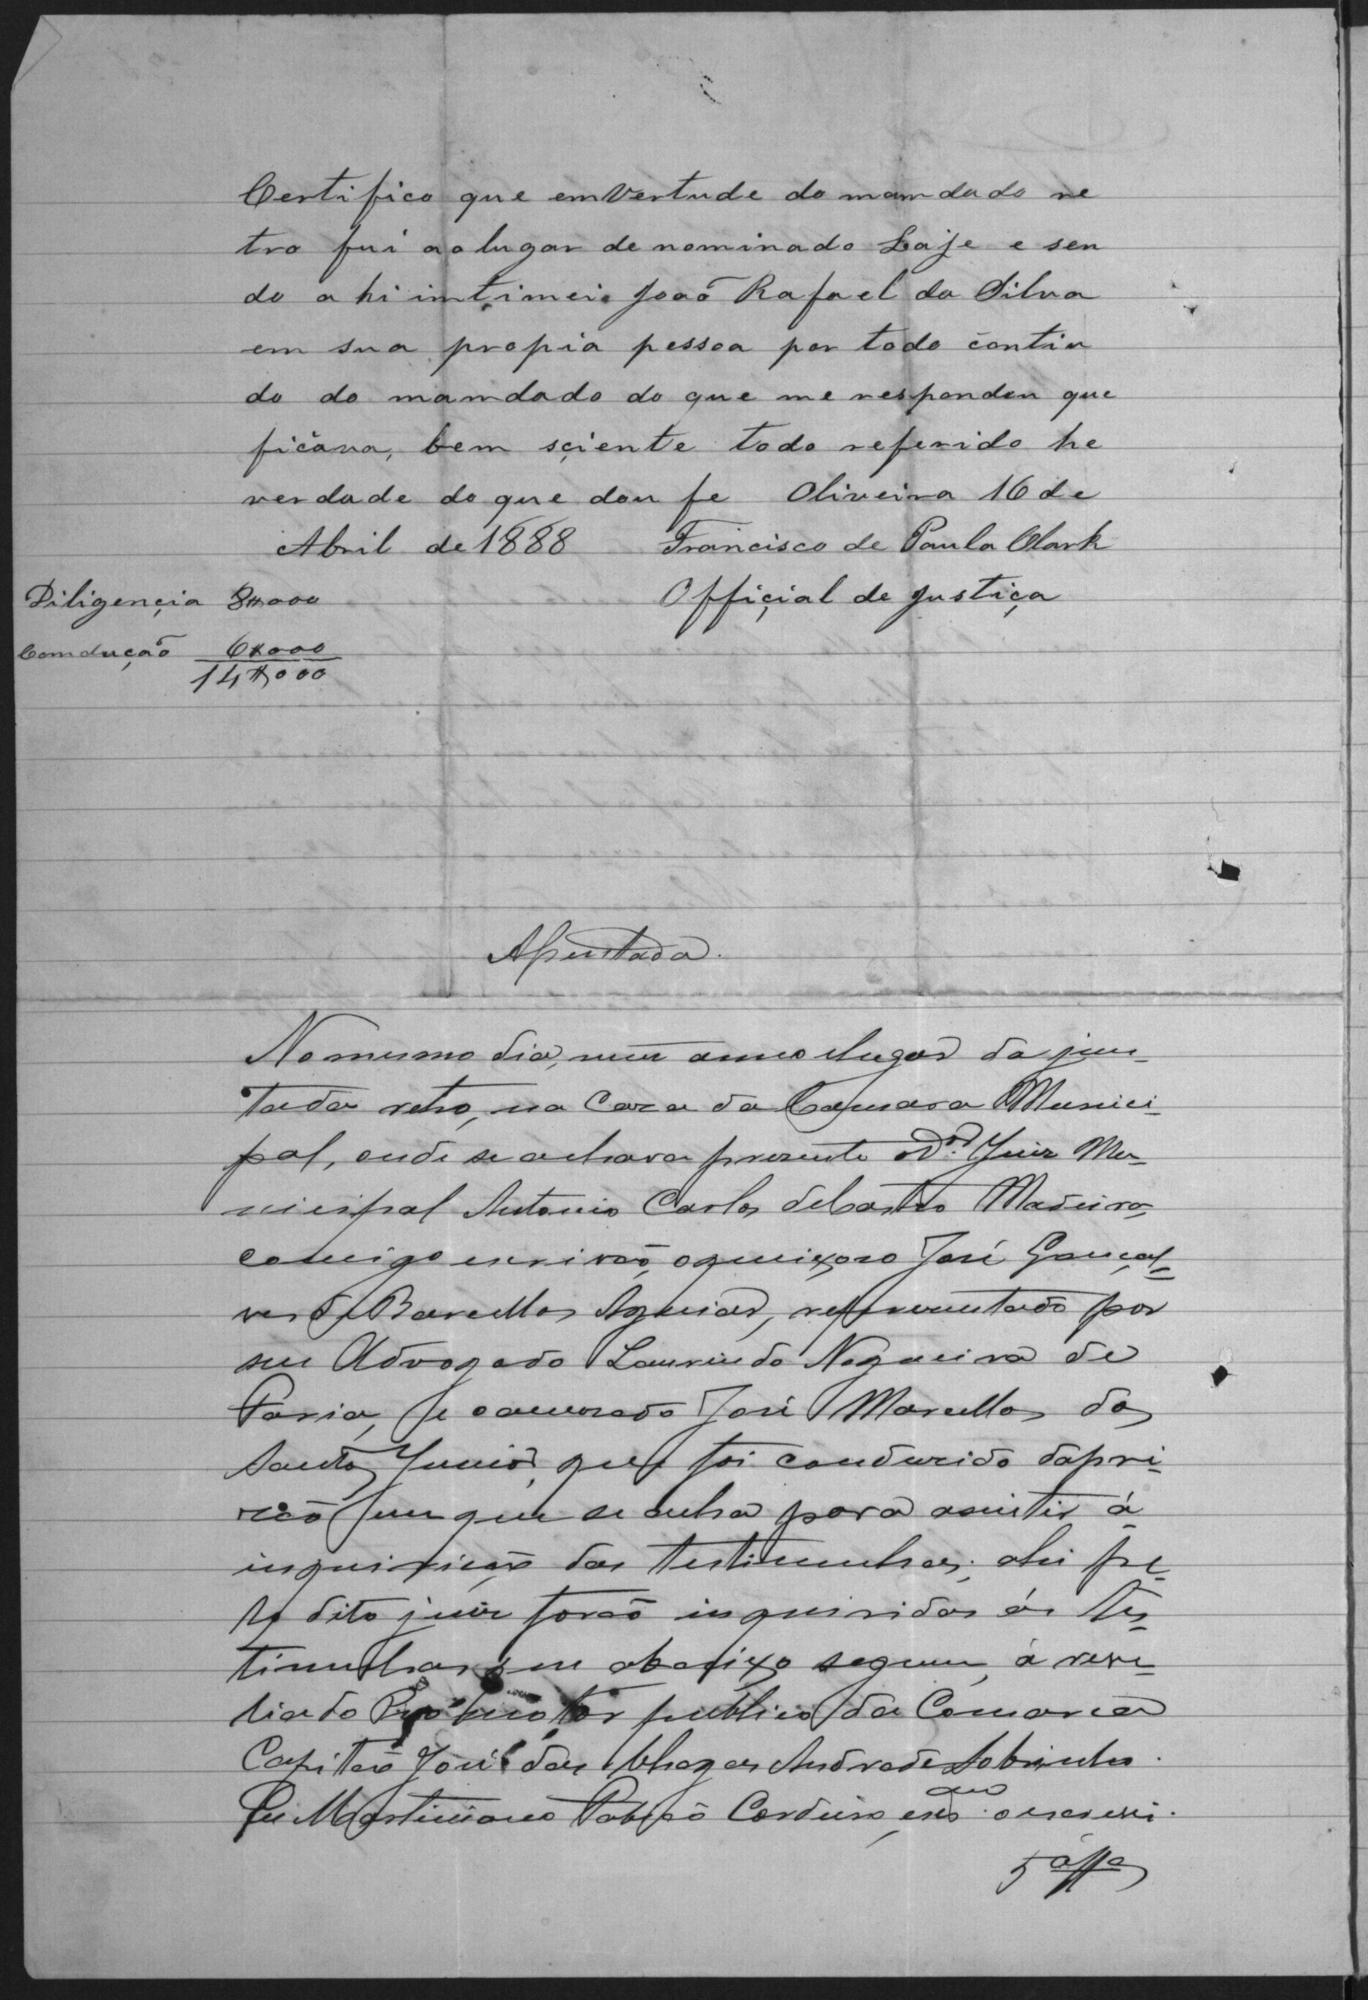 Certifico que em Vertude do mandado re
tro fui ao lugar denominado Laje e sen
do ahi intimei João Rafael da Silva
em sua propia pessoa por todo contiu
do do mandado do que me respondeu que
ficava, bem sciente todo referido he
verdade do que dou fe Oliveira 16 de
Abril de 1888 Francisco de Paula Clark
Diligencia 8#000 Official de Justiça
Comdução 6#000
14#000
Assentada.
No mesmo dia, mez anno e lugar da jun-
tada retro, na Caza da Camara Munici-
pal, onde se achava prezente o Dor. Juiz Mu-
nicipal Antonio Carlos de Castro Madeira,
comigo escrivão, o queixoso José Gonçal=
ves de Barcellos Aguiar, representado por
seu Advogado Laurindo Nogueira de
Faria, e o accusado José Marcellos dos
Santos Junior, que foi conduzido da pri-
zão em que se acha para assistir á
inquirição das testimunhas; ahi pe-
lo dito juiz forão inquiridas as tes-
timunhas que abaixo seguem, á reve-
lia do Promotor publico da Comarca
Capitão José das Chagas Andrade Sobrinho.
Eu Martiniano Cordeiro, esão que o escrevi.